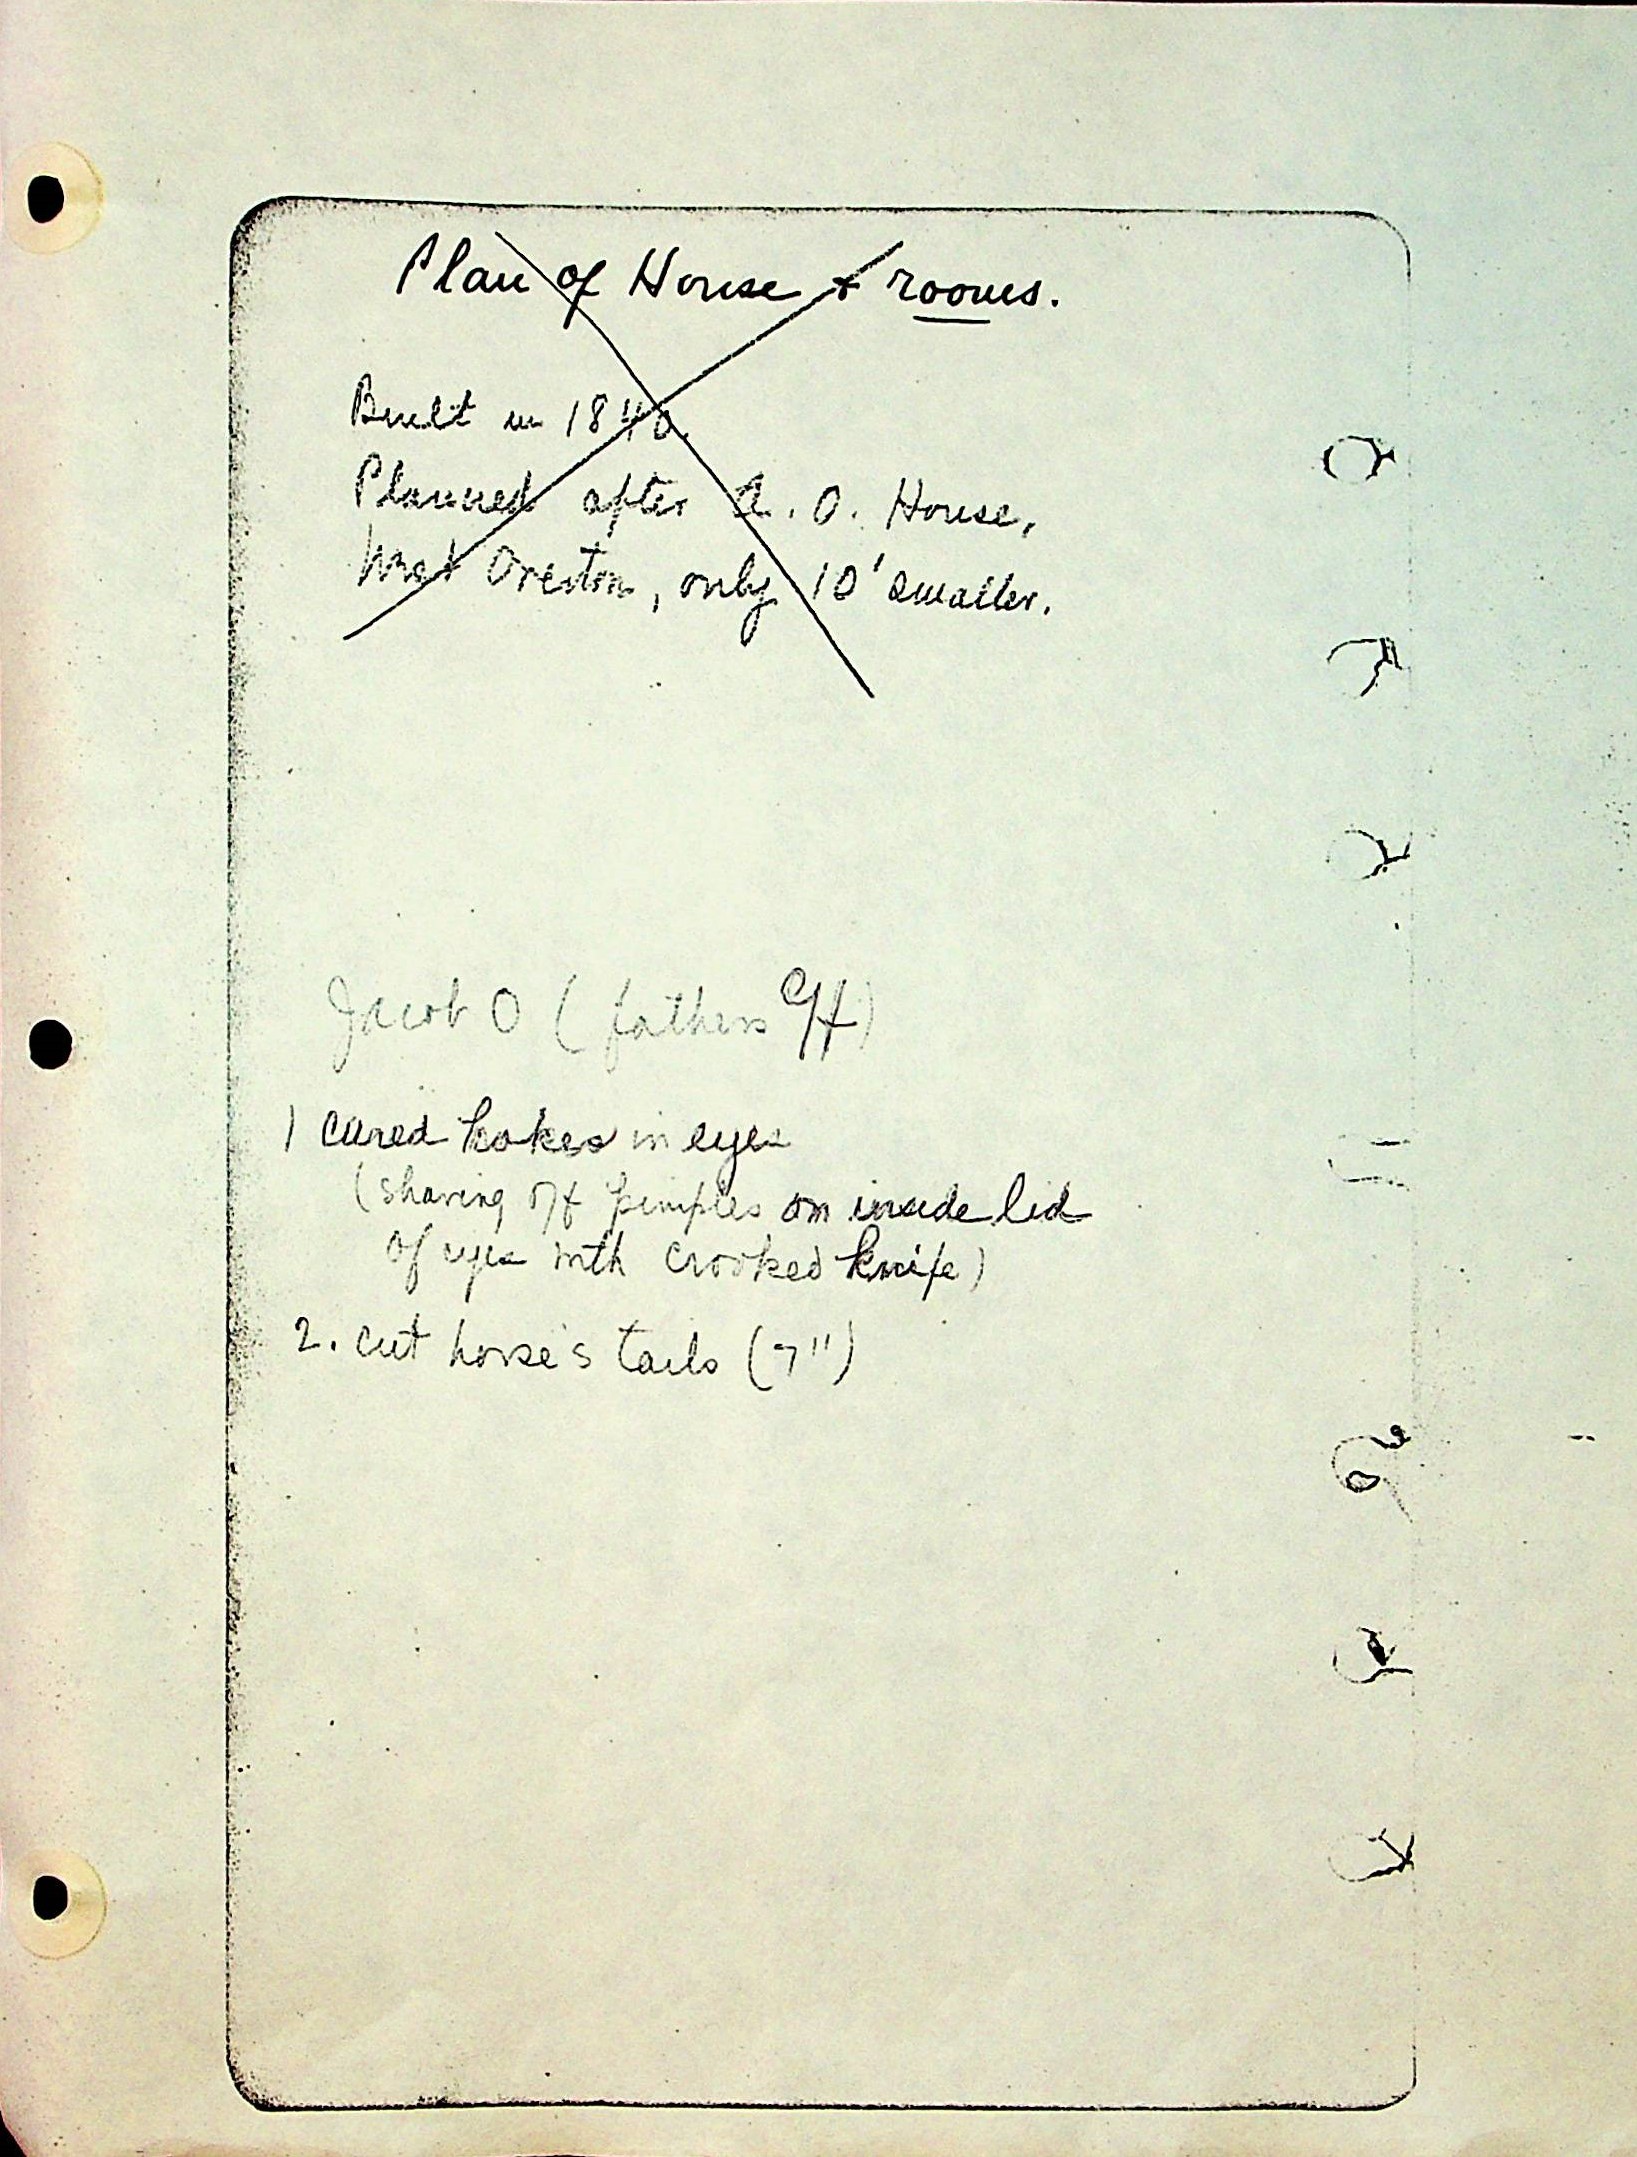 Plan of House & rooms.
Built in 1840.
Planned after A. O. House,
West Overton, only 10' smaller.
Jacob O (fathers
1 cured hokes in eyes
(shaving off pimples on inside lid
of eyes with crooked knife)
2. cut horse's tails (7")